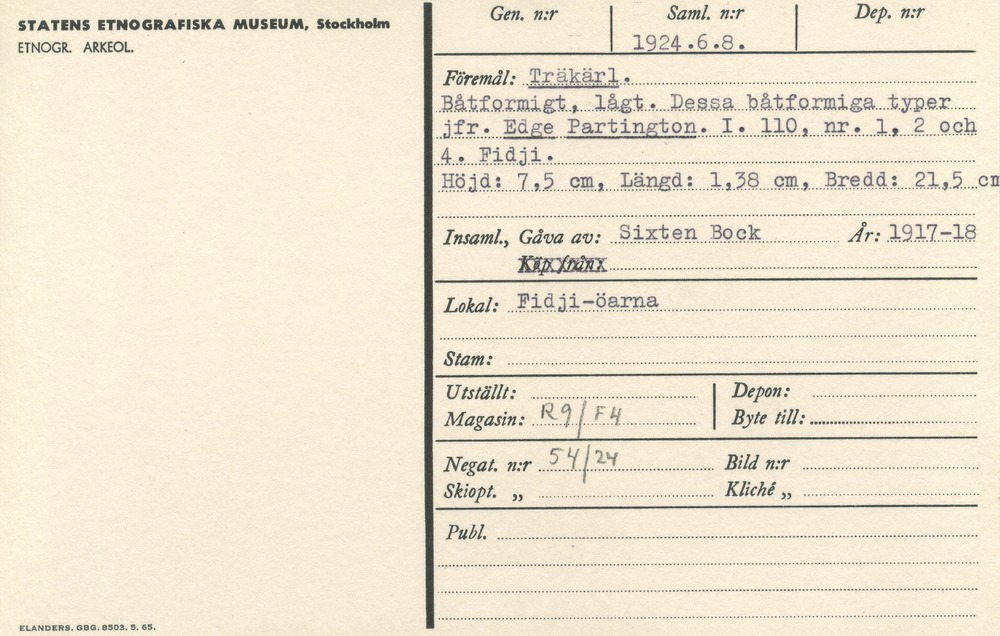 STATENS ETNOGRAFISKA MUSEUM, Stockholm
ETNOGR. ARKEOL.
Gen. n:r Saml. n:r Dep. n:r
1924.6.8.
Föremål: Träkärl.
Båtformigt, lågt. Dessa båtformiga typer
jfr. Edge Partington. I. 110, nr. 1, 2 och
4. Fidji.
Höjd: 7,5 cm, Längd: 1,38 cm, Bredd: 21,5 cm
Insaml., Gåva av: Sixten Bock År: 1917-18
Köp från:
Lokal: Fidji-öarna
Stam:
Utställt: Depon:
Magasin: R9/F4 Byte till:
Negat. n:r 54/24 Bild n:r
Skiopt. „ Kliché „
Publ.
ELANDERS. GBG. 8503. 5. 65.